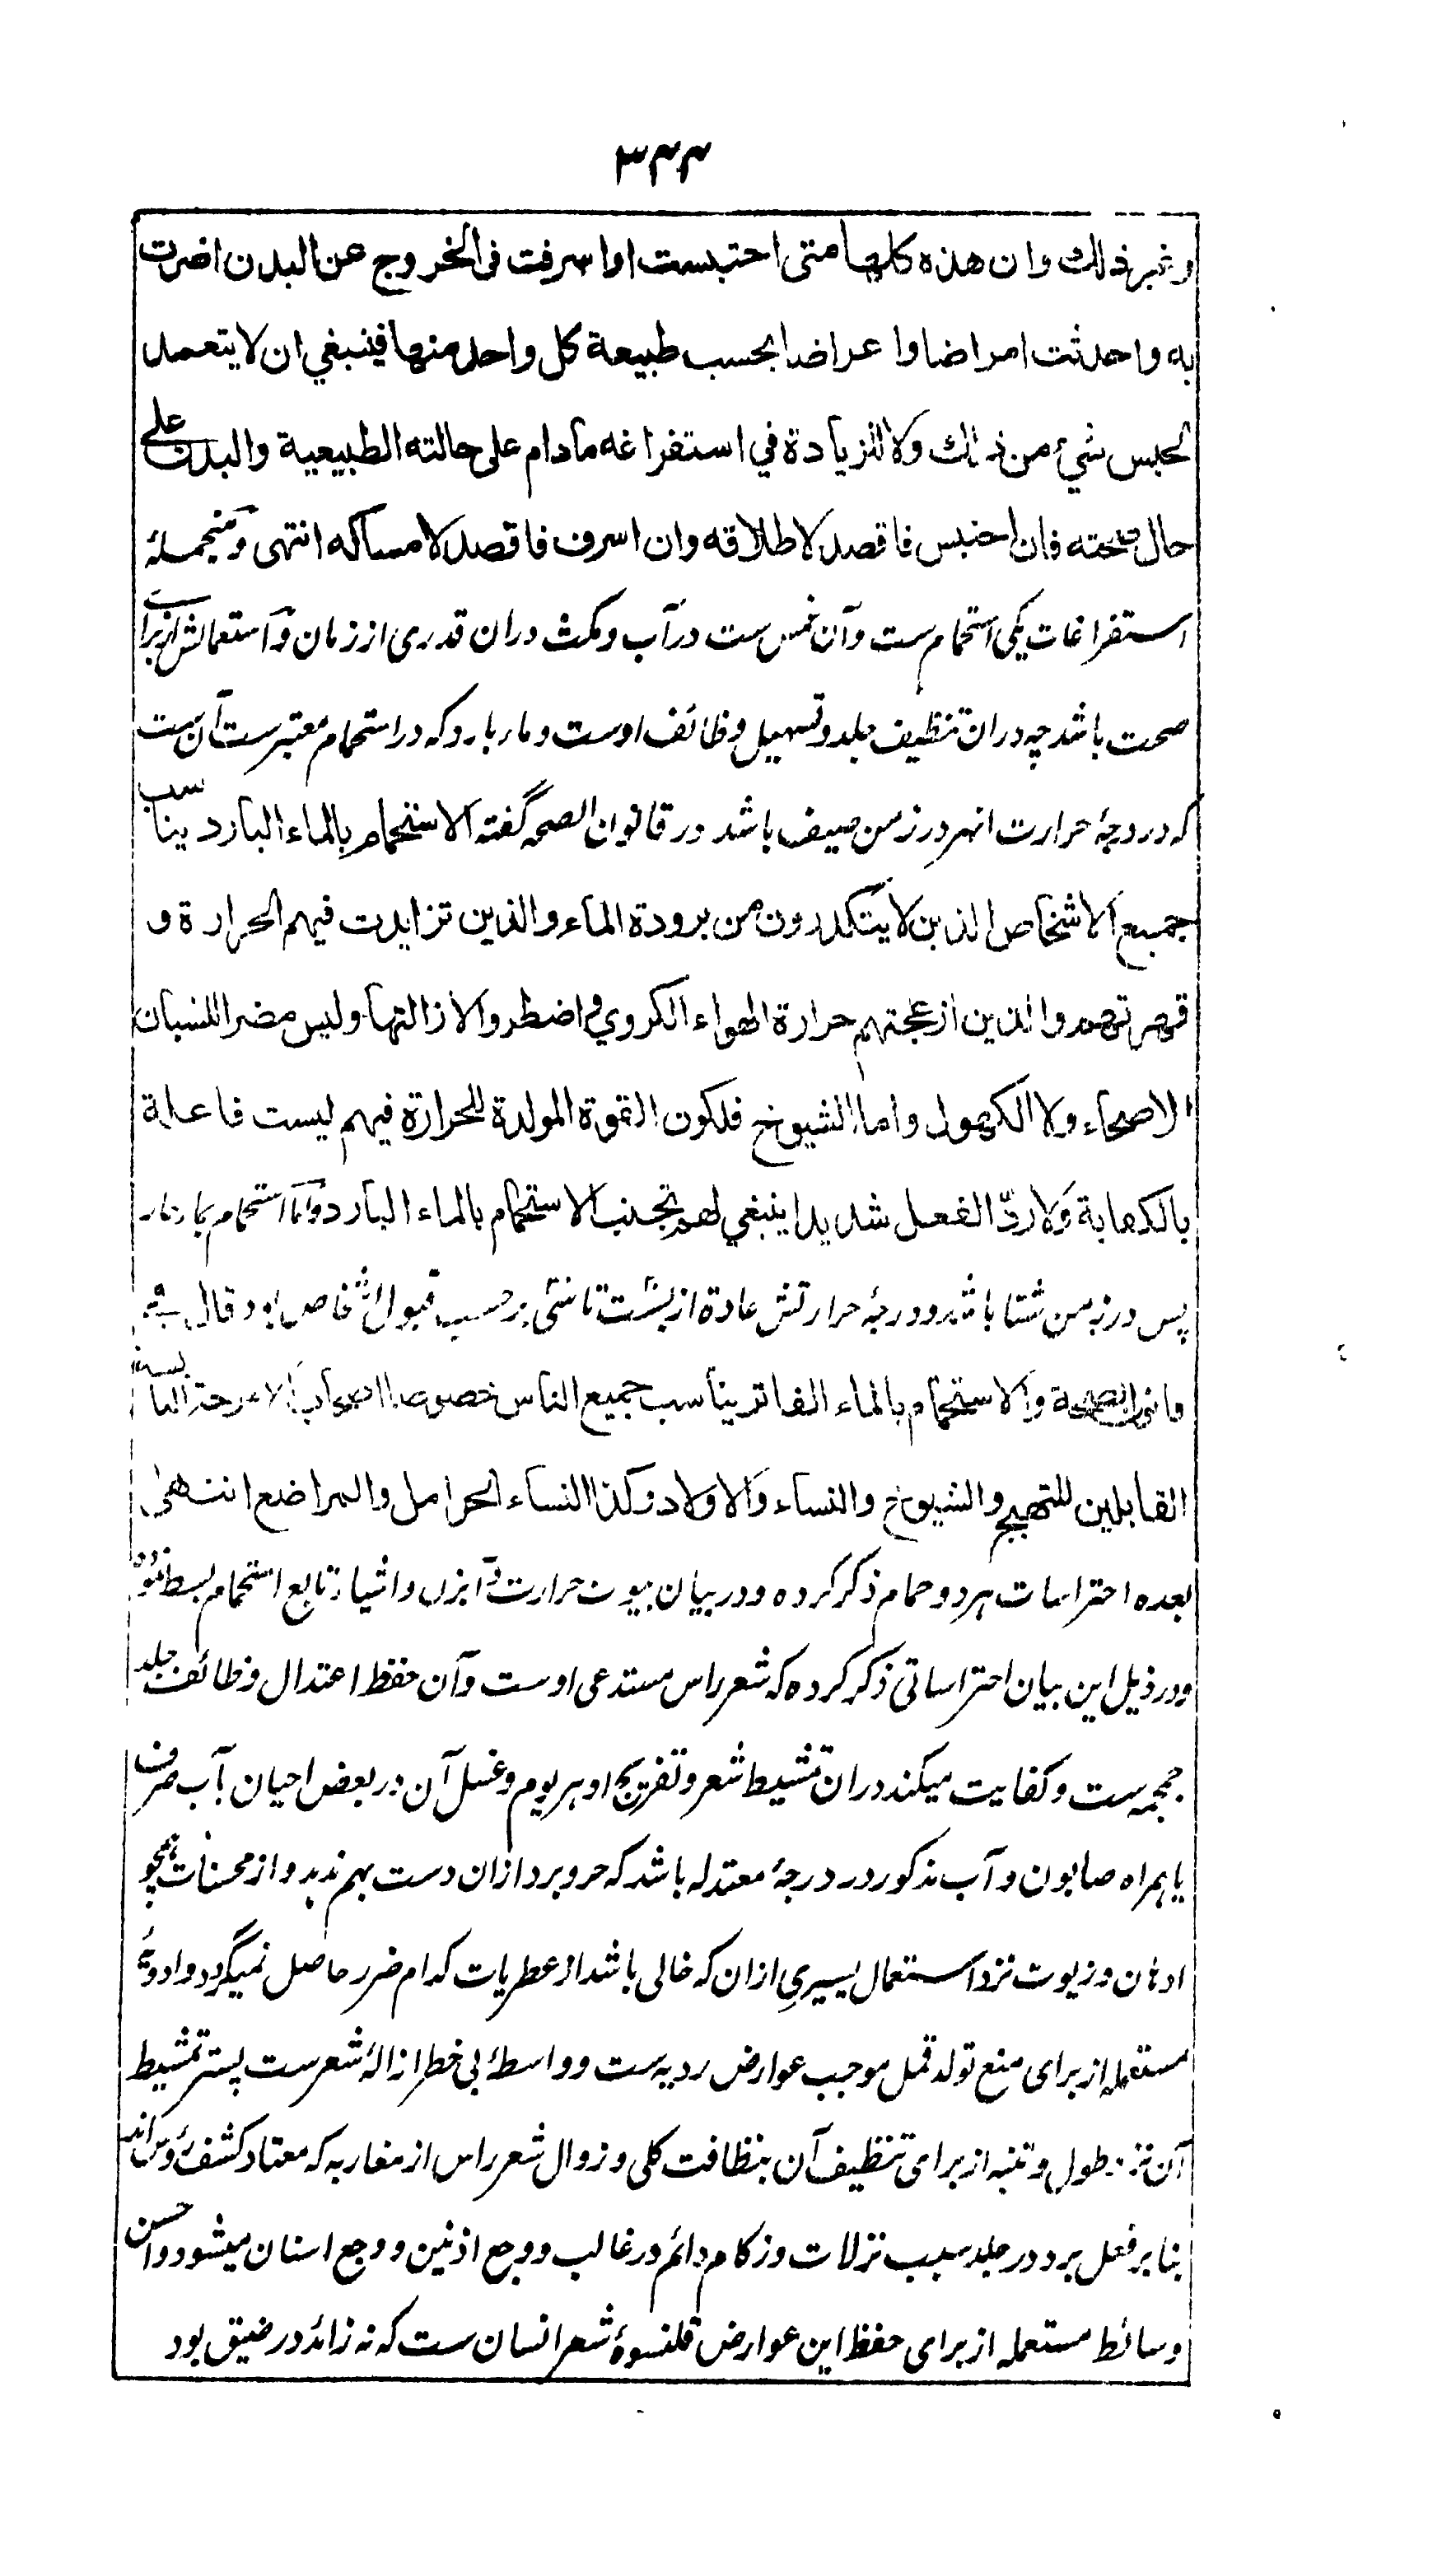 ٣٤٤
وغير ذلك وان هذه كلها متى احتبست او اسرفت فى الخروج عن البدن اضرت
به واحدثت امراضا واعراضا بحسب طبيعة كل واحد منها فينبغي ان لا يتعمد
لحبس شيئ من ذلك ولا للزيادة في استفراغه مادام على حالته الطبيعية والبدن على
حال صحته فان احتبس فاقصد لاطلاقه وان اسرف فاقصد لامساكه انتهى ومنجملۀ
استفراغات یکی استحمام ست وآن غمس ست در آب ومکث دران قدری از زمان واستعمالش از برای
صحت باشد چه دران تنظیف جلد وتسهیل وظائف اوست وماء بارد که در استحمام معتبرست آن ست
که در درجۀ حرارت انهر در زمن صیف باشد در قانون الصحه گفته الاستحمام بالماء البارد يناسب
جميع الاشخاص الذين لا يتكدرون من برودة الماء والذين تزايدت فيهم الحرارة و
والذين ازعجتهم حرارة الهواء الكروي واضطروا لازالتها وليس مضرا للشبان
الاصحاء ولا الكهول واما الشيوخ فلكون القوة المولدة للحرارة فيهم ليست فاعلة
بالكفاية ولا ردّ الفعل شديدا ينبغي لهم تجنب الاستحمام بالماء البارد واما استحمام بماء حار
پس در زمن شتا باشد ودرجۀ حرارتش عادة از بست تا سی بر حسب قبول اشخاص بود قال فی
قانون الصحة والاستحمام بالماء الفاتر يناسب جميع الناس خصوصا اصحاب الامزجة اليابسة
القابلين للتهيج والشيوخ والنساء والاولاد وكذا النساء الحوامل والمراضع انتهى
بعده احتراسات هر دو حمام ذکر کرده ودر بیان بیوت حرارت وآبزن واشیاء تابع استحمام بسط نموده
ودر ذیل این بیان احتراساتی ذکر کرده که شعر راس مستدعی اوست وآن حفظ اعتدال وظائف جلد
جمجمه ست وکفایت میکند دران تمشیط شعر وتفریج او هر یوم وغسل آن در بعض احیان بآب صرف
یا همراه صابون وآب مذکور در درجۀ معتدله باشد که حر وبرد ازان دست بهم ندهد واز محسنات همچو
ادهان وزیوت نزد استعمال یسیری ازان که خالی باشد از عطریات کدام ضرر حاصل نمیگردد وادویۀ
مستعمله از برای منع تولد قمل موجب عوارض ردیه ست وواسطۀ بی خطر ازالۀ شعرست پستر تمشیط
آن نزد طول وتنبه از برای تنظیف آن بنظافت کلی وزوال شعر راس از مغاربه که معتاد کشف رؤس اند
بنابر فعل برد در جلد سبب نزلات وزکام دائم در غالب ووجع اذنین ووجع اسنان میشود واحسن
وسائط مستعمله از برای حفظ این عوارض قلنسوۀ شعر انسان ست که نه زائد در ضیق بود